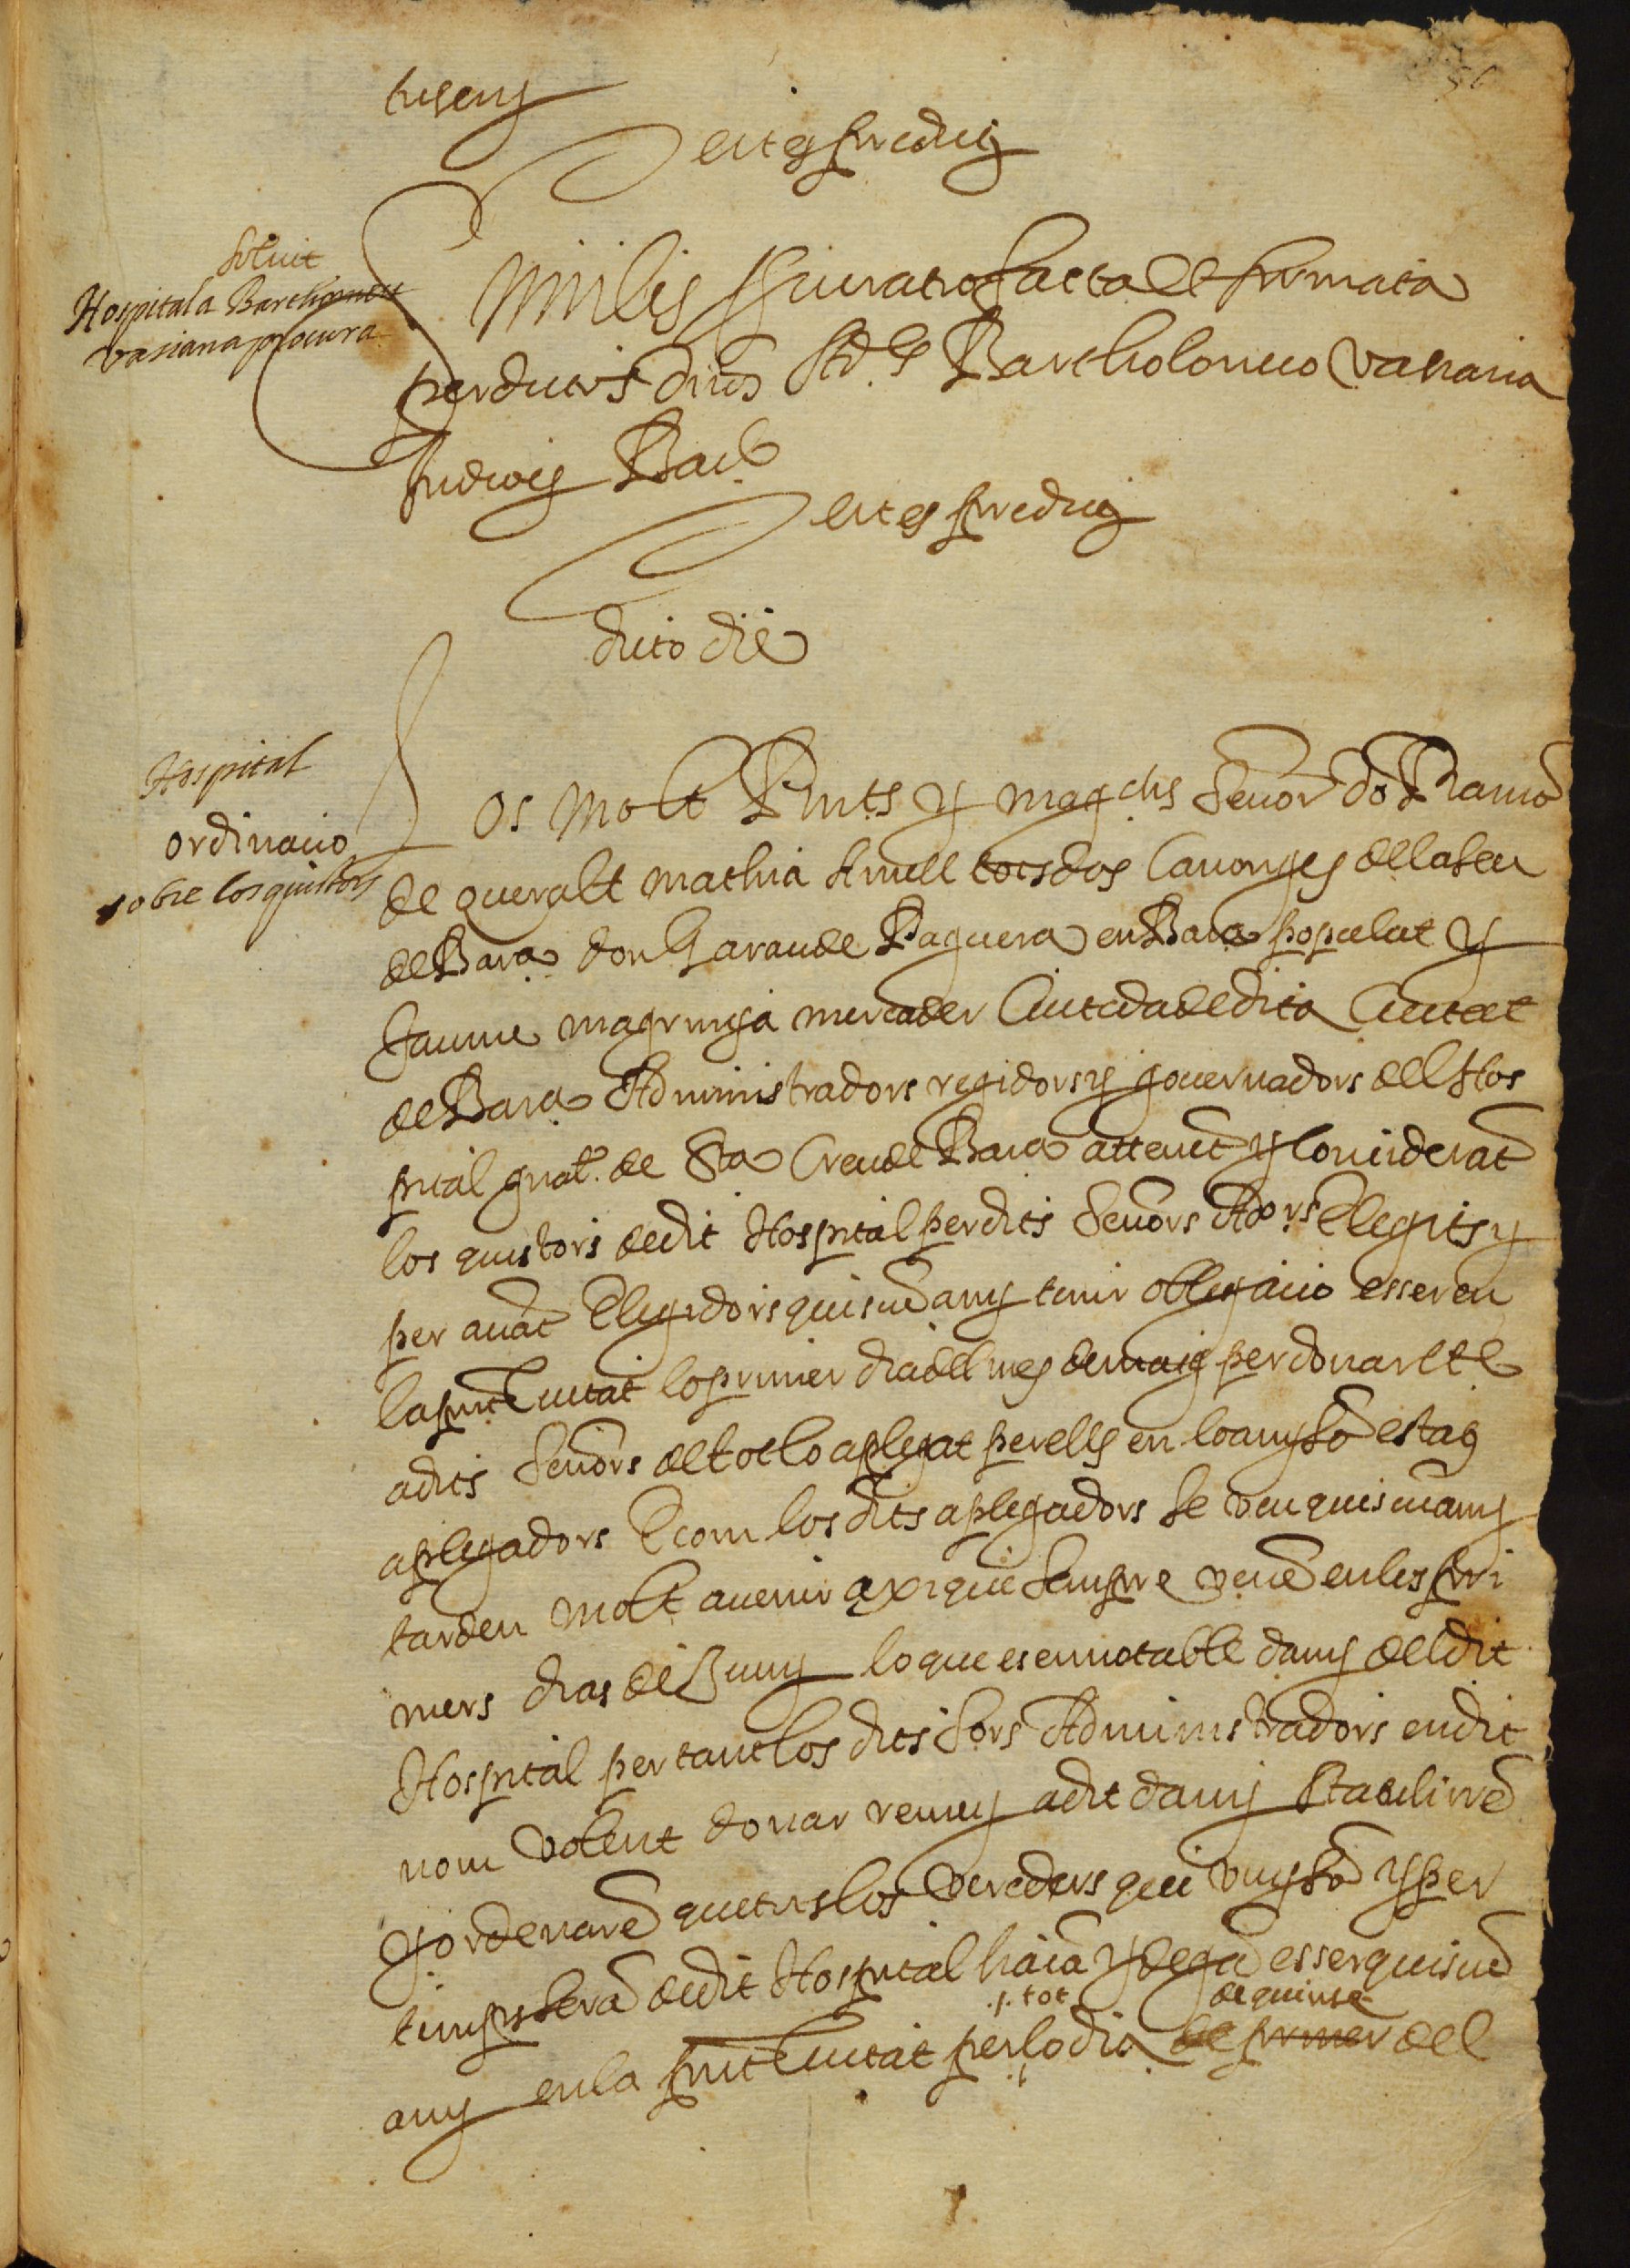 56
testes predicti
Solvit
Hospital a Barthomeu
vasiana procura
Similis procuratio facta et firmata
per dictos dnos Ad.es Bartholomeo vasiana
Bar.e
testes predicti
dicto die
Hospital
ordinacio
sobre los quistors
Los Molt Rnts y magchs senors do Ramo
de queralt mathia Amell tots dos Canonges de la Seu
de Bara don Garau de Paguera en Bara populat y
Jaume magrinya mercader Ciutada de dita Ciutat
de Bara Administradors regidors y governadors del Hos
pital gnal. de Sta Creu de Bara attenent y considerant
los quistors de dit Hospital per dits senors Adors Elegits y
per avat Elegidors quiscu any tenir obligacio esser en
la pnt Ciutat lo primer dia del mes de maig per donar cte
a dits senors de tot lo aplegat per ells en lo any so estas
aplegadors E com los dits aplegadors se veu quiscu any
tarden molt a venir axi que sempre vene en les pri
mers dias de Juny lo que es en notable dany del dit
Hospital per tant los dits Sors Administradors en dit
nom volent donar remey a dit dany Stabliren
y ordenaren que tots los vereders que vuy so y per
temps seran de dit Hospital haian y degan esser quiscun
.p. tot de quinse
any en la pnt Ciutat per lo dia de primer del